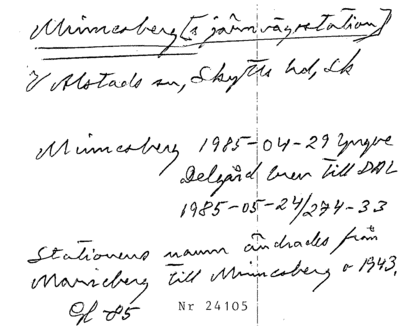 Minnesberg [s järnvägsstation]
V Alstads sn, Skytts hd, Sk
Minnesberg 1985-04-29 Yngve
Delgård brev till DAL
1985-05-24/274-33
Stationens namn ändrades från
Marieberg till Minnesberg o 1943.
GH -85
Nr 24105